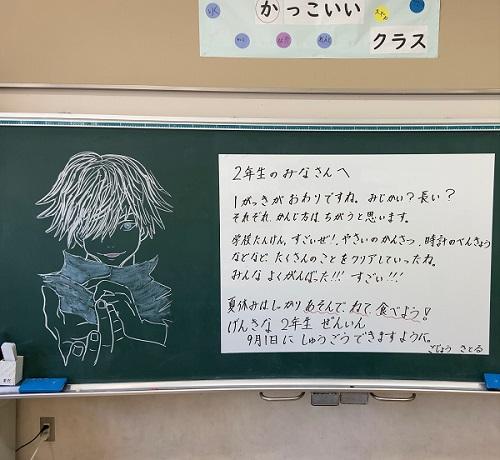 かっこいい
クラス
2年生のみなさんへ
1がっきがおわりですね。みじかい?長い?
それぞれ、かんじ方はちがうと思います。
学校たんけん、すごいぜ!、やさいのかんさつ、時計のべんきょう
などなど、たくさんのことをクリアしていったね。
みんなよくがんばった!!! すごい!!!
夏休みはしっかりあそんで、ねて、食べよう!
げんきな2年生 ぜんいん
9月1日にしゅうごうできますように。
ごじょう さとる